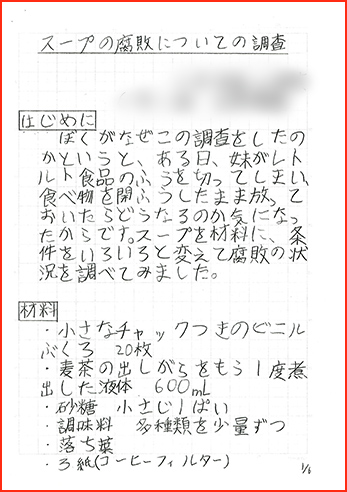 スープの腐敗についての調査
はじめに
ぼくがなぜこの調査をしたの
かというと、ある日、妹がレト
ルト食品のふうを切ってしまい、
食べ物を開ふうしたまま放って
おいたらどうなるのか気になっ
たからです。スープを材料に、条
件をいろいろと変えて腐敗の状
況を調べてみました。
材料
・小さなチャックつきのビニル
ぶくろ 20枚
・麦茶の出しがらをもう1度煮
出した液体 600mL
・砂糖 小さじ1ぱい
・調味料 多種類を少量ずつ
・落ち葉
・ろ紙(コーヒーフィルター)
1/6